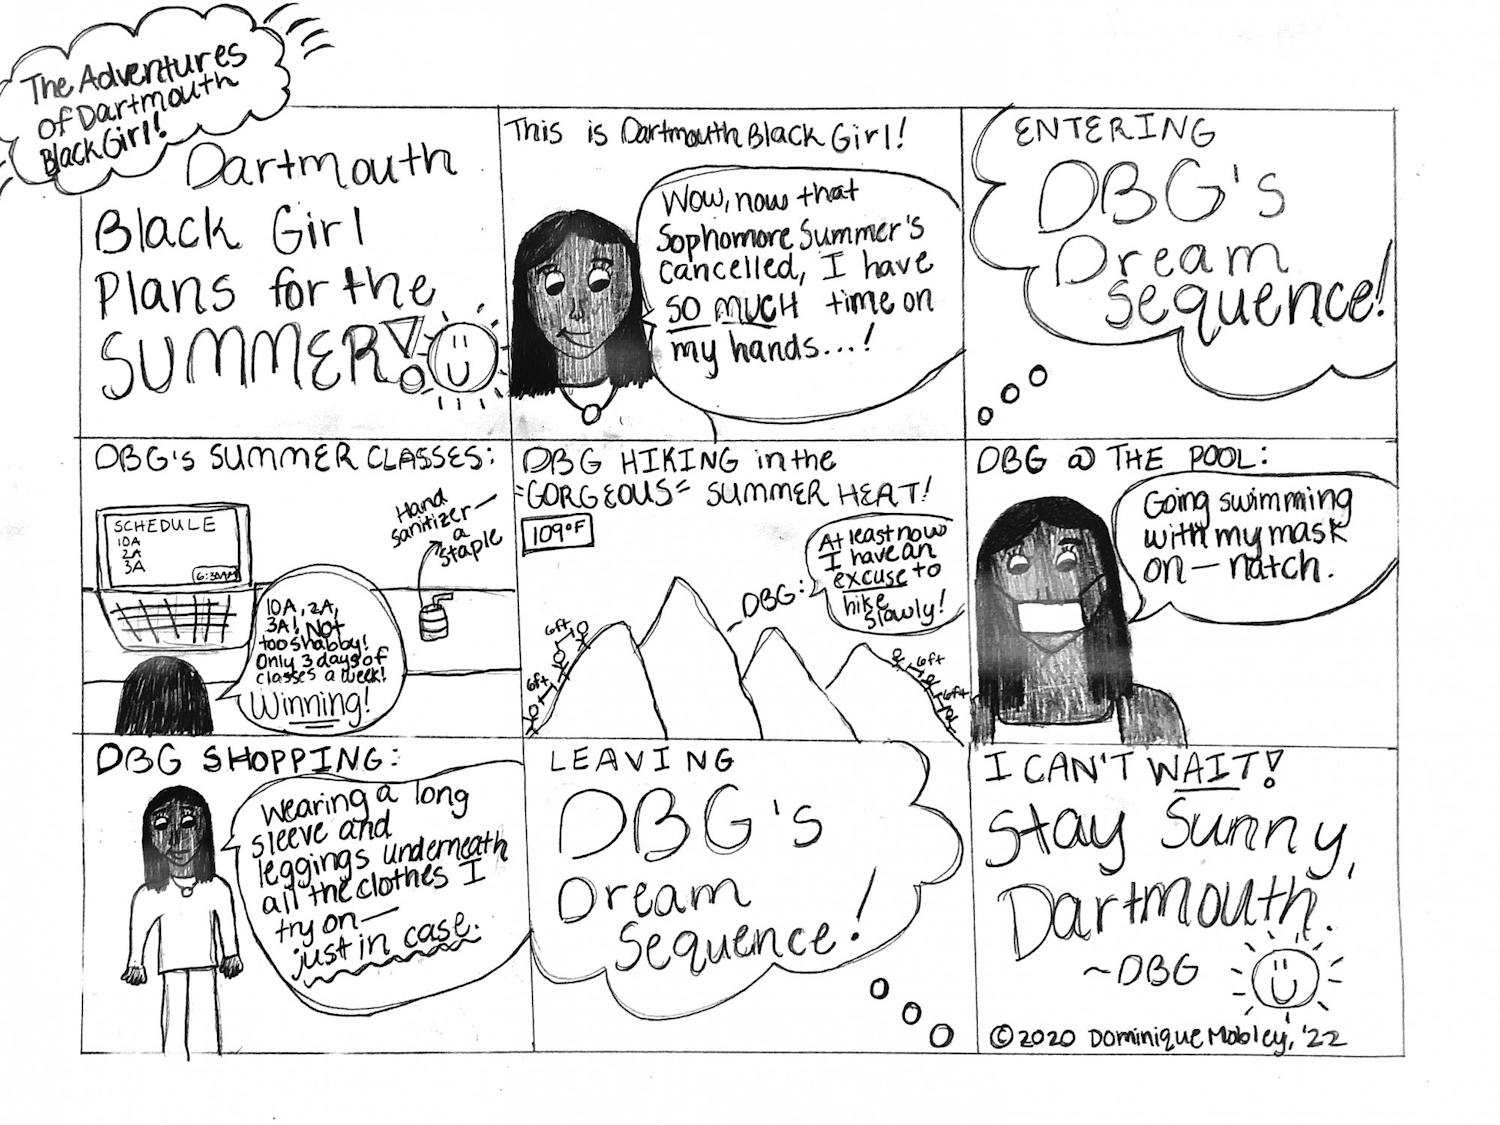 The Adventures
of Dartmouth
Black Girl!
Dartmouth
Black Girl
Plans for the
SUMMER!
This is Dartmouth Black Girl!
Wow, now that
Sophomore Summer's
cancelled, I have
SO MUCH time on
my hands...!
ENTERING
DBG's
Dream
Sequence!
DBG's SUMMER CLASSES:
SCHEDULE
10A
2A
3A
6:30AM
Hand
sanitizer—
a
staple
10A, 2A,
3A! Not
too shabby!
Only 3 days of
classes a week!
Winning!
DBG HIKING in the
=GORGEOUS= SUMMER HEAT!
109°F
At least now
I have an
excuse to
hike
slowly!
DBG:
6ft
6ft
6ft
6ft
DBG @ THE POOL:
Going swimming
with my mask
on — natch.
DBG SHOPPING:
Wearing a long
sleeve and
leggings underneath
all the clothes I
try on—
just in case.
LEAVING
DBG's
Dream
Sequence!
I CAN'T WAIT!
Stay Sunny,
Dartmouth.
~DBG
©2020 Dominique Mobley, '22